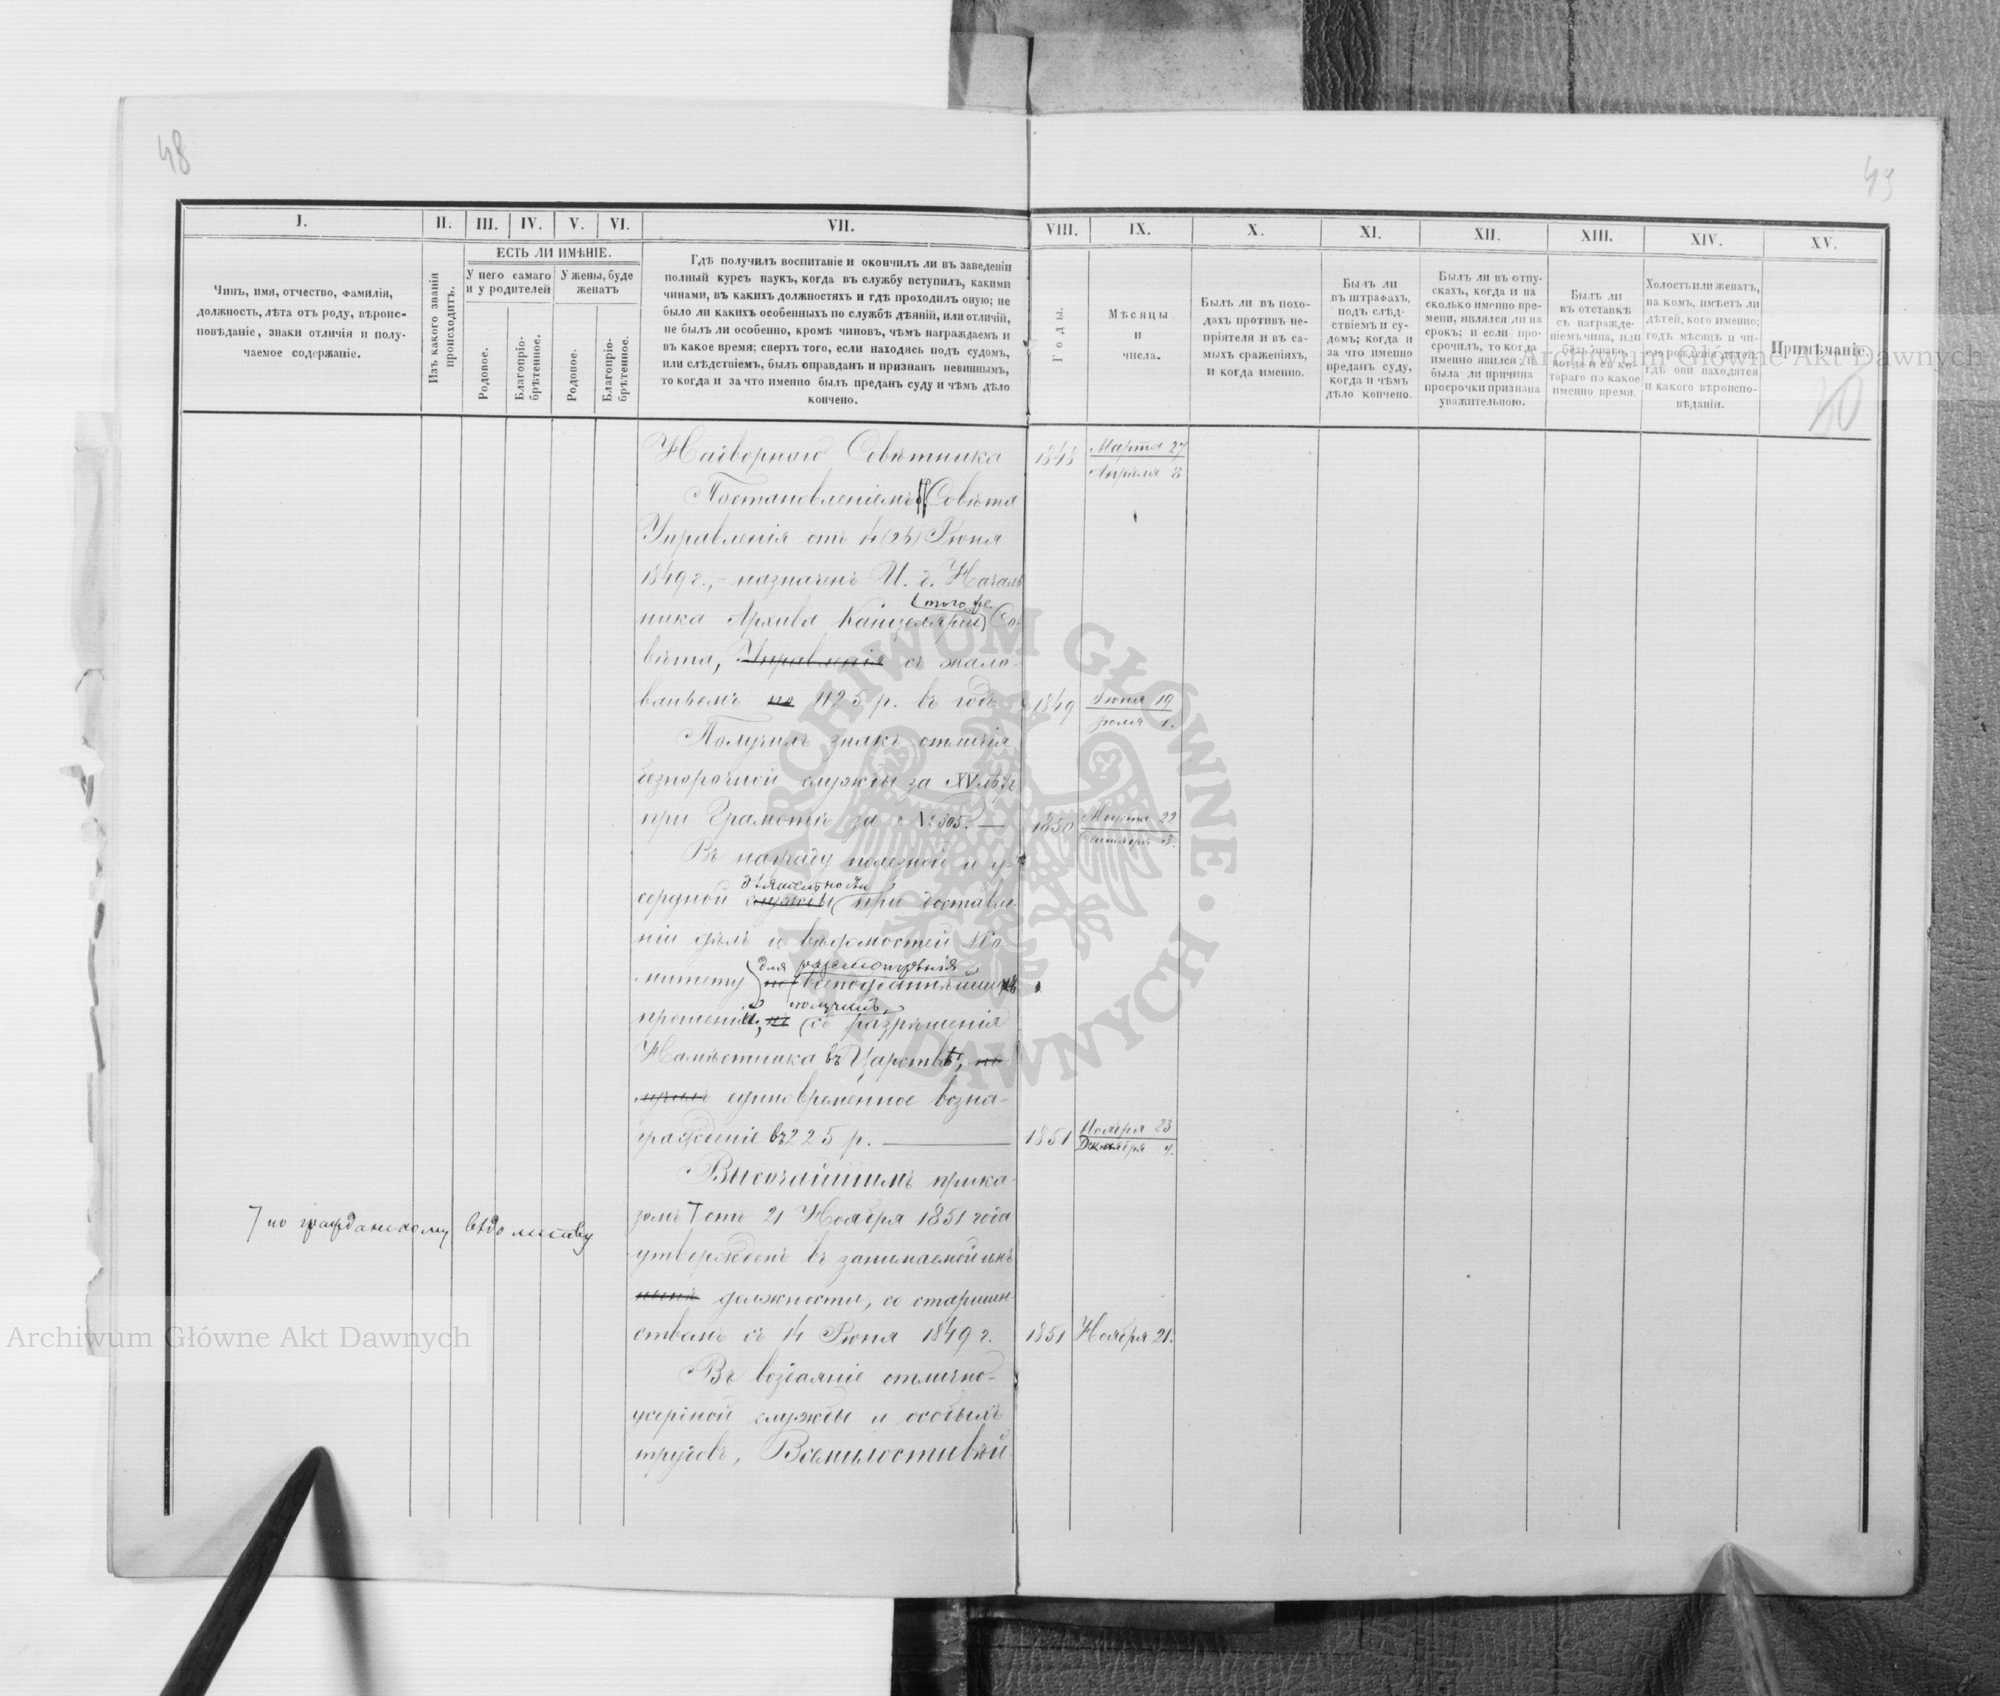 48
49
I.
II.
III.
IV.
V.
VI.
VII.
VIII.
IX.
X.
XI.
XII.
XIII.
XIV.
XV.
Чинъ, имя, отчество, фамилія,
должность, лѣта отъ роду, вѣроис-
повѣданіе, знаки отличія и полу-
чаемое содержаніе.
Изъ какого званія
происходитъ.
ЕСТЬ ЛИ ИМѢНІЕ.
У него самаго
и у родителей
У жены, буде
женатъ
Родовое.
Благопріо-
брѣтенное.
Родовое.
Благопріо-
брѣтенное.
Гдѣ получилъ воспитаніе и окончилъ ли въ заведеніи
полный курсъ наукъ, когда въ службу вступилъ, какими
чинами, въ какихъ должностяхъ и гдѣ проходилъ оную; не
было ли какихъ особенныхъ по службѣ дѣяній, или отличій,
не былъ ли особенно, кромѣ чиновъ, чѣмъ награждаемъ и
въ какое время; сверхъ того, если находясь подъ судомъ,
или слѣдствіемъ, былъ оправданъ и признанъ невиннымъ,
то когда и за что именно былъ преданъ суду и чѣмъ дѣло
кончено.
Годы.
Мѣсяцы
и
числа.
Былъ ли въ похо-
дахъ противъ не-
пріятеля и въ са-
мыхъ сраженіяхъ,
и когда именно.
Былъ ли
въ штрафахъ,
подъ слѣд-
ствіемъ и су-
домъ; когда и
за что именно
преданъ суду,
когда и чѣмъ
дѣло кончено.
Былъ ли въ отпу-
скахъ, когда и на
сколько именно вре-
мени, являлся ли на
срокъ; и если про-
срочилъ, то когда
именно явился и
была ли причина
просрочки признана
уважительною.
Былъ ли
въ отставкѣ
съ награжде-
ніемъ чина, или
безъ онаго,
когда и съ ко-
тораго по какое
именно время.
Холостъ или женатъ,
на комъ, имѣетъ ли
дѣтей, кого именно;
годъ мѣсяцъ и чи-
сло рожденія дѣтей,
гдѣ они находятся
и какого вѣроиспо-
вѣданія.
Примѣчаніе.
Надворнаго Совѣтника
1848
Марта 27
Апрѣля 8
Постановленіемъ Совѣта
Управленія отъ 14(26) Іюня
1849 г., назначенъ И. д. Началь
того же
ника Архива Канцеляріи Со-
вѣта, Управленія съ жало-
ваньемъ по 425 р. въ годъ
1849
Іюня 19
Іюля 1.
Получилъ знакъ отличія
безпорочной службы за XV лѣтъ
при Грамотѣ за № 505.
1850
Августа 22
Сентября 3.
Въ награду полезной и у-
дѣятельности
сердной службы при доставле-
ніи дѣлъ и вѣдомостей Ко-
для разсмотрѣнія
митету по всеподданнѣйшимъ
получилъ
прошеній, съ разрѣшенія
Намѣстника въ Царствѣ, по-
лучилъ единовременное возна-
гражденіе въ 225 р.
1851
Ноября 23
Декабря 4.
Высочайшимъ прика-
зомъ отъ 21 Ноября 1851 года
по гражданскому вѣдомству
утвержденъ въ занимаемой имъ
нынѣ должности, со старшин-
ствомъ съ 14 Іюня 1849 г.
1851
Ноября 21.
Въ воздаяніе отлично-
усердной службы и особыхъ
трудовъ, Всемилостивѣй-
40
Archiwum Główne Akt Dawnych
Archiwum Główne Akt Dawnych
ARCHIWUM GŁÓWNE AKT DAWNYCH